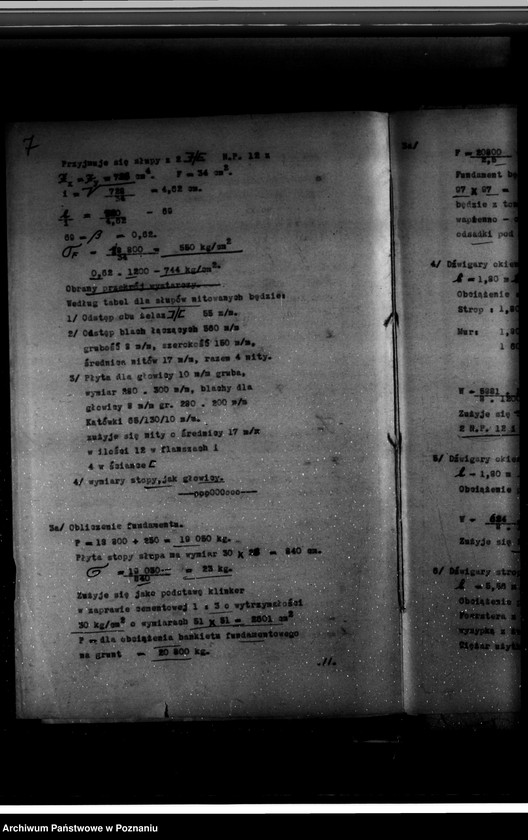 7
Przyjmuje się słupy z 2 N.P. 12 z
= 728 cm⁴. F = 34 cm².
i = √ 728 / 34 = 4,62 cm.
4,62 - 69
69 - β = 0,62.
= 18 800 / 34 = 550 kg/cm²
0,62 . 1200 - 744 kg/cm².
Obrany przekrój wymiarowy.
Według tabel dla słupów nitowanych będzie:
1/ Odstęp obu żelaz 55 m/m.
2/ Odstęp blach łączących 560 m/m
grubość 8 m/m, szerokość 150 m/m,
średnica nitów 17 m/m, razem 4 nity.
3/ Płyta dla głowicy 10 m/m gruba,
wymiar 290 . 300 m/m, blachy dla
głowicy 8 m/m gr. 290 . 200 m/m
Kątówki 65/130/10 m/m.
zużyje się nity o średnicy 17 m/m
w ilości 12 w flanszach i
4 w ściance
4/ wymiary stopy, jak głowicy.
---ooo000ooo---
3a/ Obliczenie fundamentu.
P = 18 800 + 250 = 19 050 kg.
Płyta stopy słupa ma wymiar 30 x 28 = 840 cm.
σ = 19 050 / 840 = 23 kg.
Zużyje się jako podstawę klinker
w zaprawie cementowej 1 : 3 o wytrzymałości
30 kg/cm² o wymiarach 51 x 51 = 2601 cm²
P - dla obciążenia bankietu fundamentowego
na grunt = 20 800 kg.
.11.
3a/
F = 20800
2,5
Fundament bę
97 x 97 =
będzie z
wapienno -
odsadki pod
4/ Dźwigary okien
l = 1,80 m
Obciążenie
Strop : 1,80
Mur: 1,80
W -
Zużyje się
2 N.P. 12
5/ Dźwigary okien
l = 1,90 m
Obciążenie
W -
Zużyje się
6/ Dźwigary strop
Obciążenie
wysypką z
Ciężar użyt
Archiwum Państwowe w Poznaniu